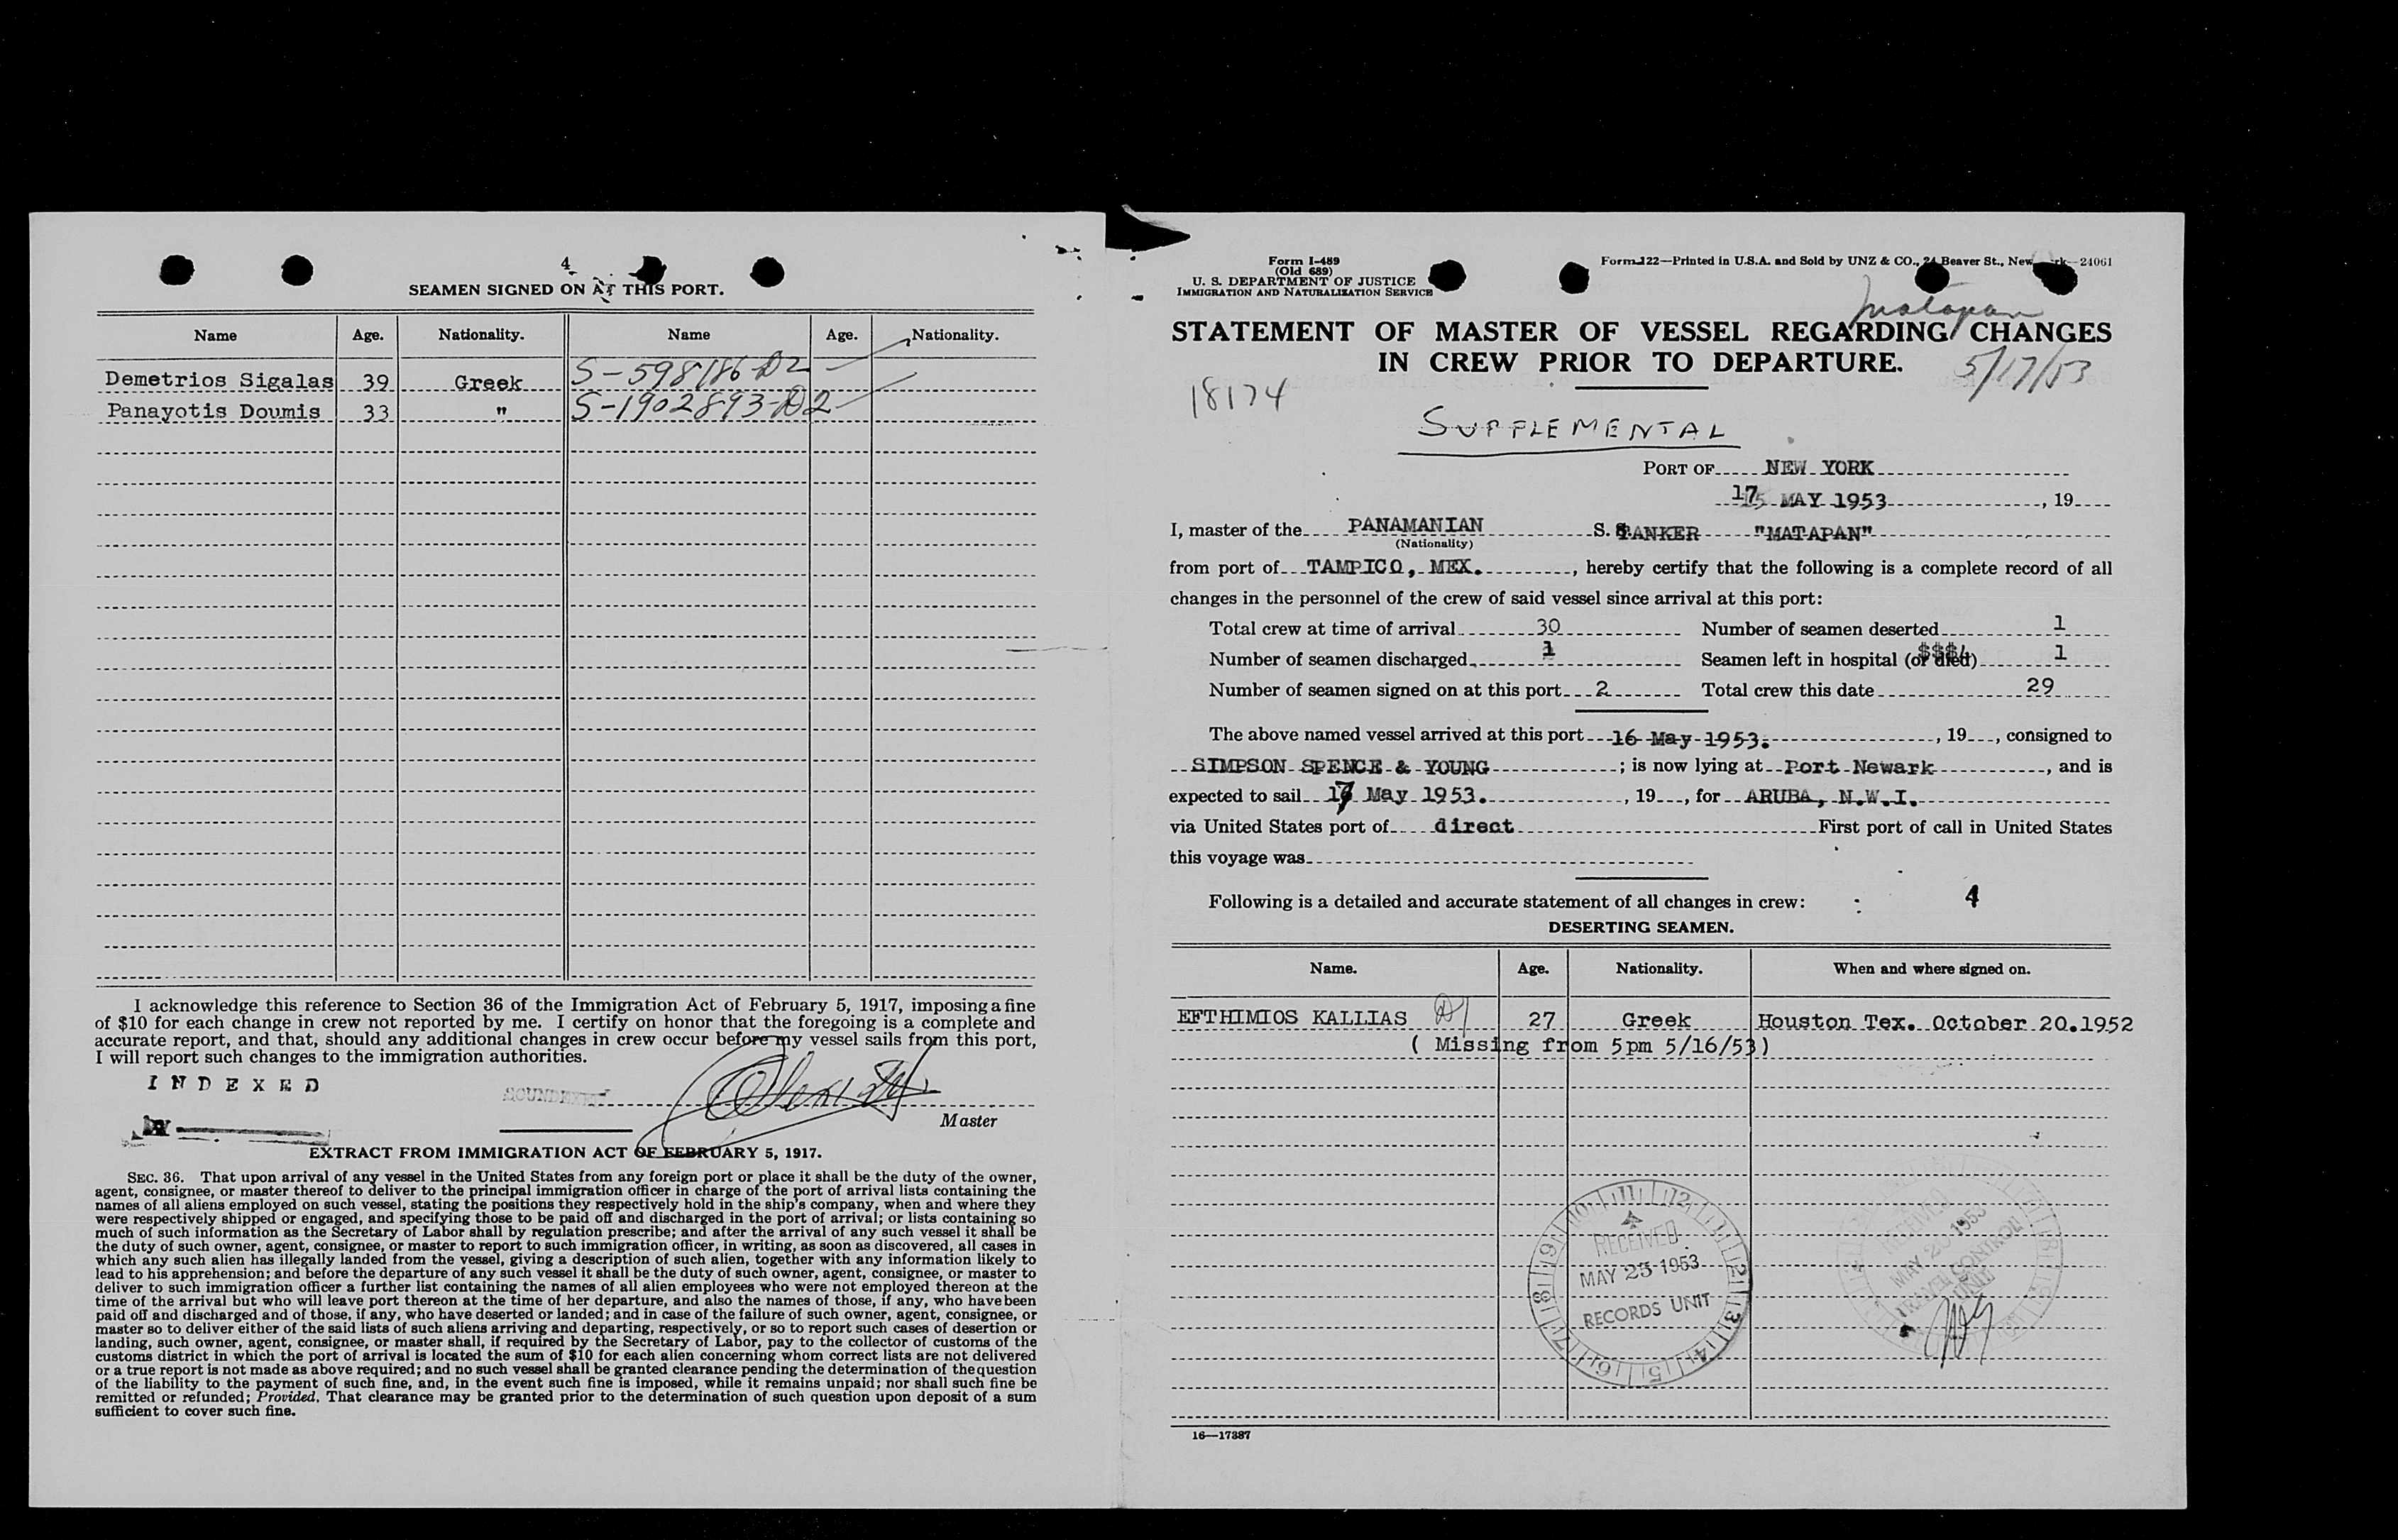 4
SEAMEN SIGNED ON AT THIS PORT.
Name Age. Nationality. Name Age. Nationality.
Demetrios Sigalas 39 Greek S-598186-D2
Panayotis Doumis 33 " S-1902893-D2
I acknowledge this reference to Section 36 of the Immigration Act of February 5, 1917, imposing a fine
of $10 for each change in crew not reported by me. I certify on honor that the foregoing is a complete and
accurate report, and that, should any additional changes in crew occur before my vessel sails from this port,
I will report such changes to the immigration authorities.
INDEXED
BY
Master
EXTRACT FROM IMMIGRATION ACT OF FEBRUARY 5, 1917.
SEC. 36. That upon arrival of any vessel in the United States from any foreign port or place it shall be the duty of the owner,
agent, consignee, or master thereof to deliver to the principal immigration officer in charge of the port of arrival lists containing the
names of all aliens employed on such vessel, stating the positions they respectively hold in the ship's company, when and where they
were respectively shipped or engaged, and specifying those to be paid off and discharged in the port of arrival; or lists containing so
much of such information as the Secretary of Labor shall by regulation prescribe; and after the arrival of any such vessel it shall be
the duty of such owner, agent, consignee, or master to report to such immigration officer, in writing, as soon as discovered, all cases in
which any such alien has illegally landed from the vessel, giving a description of such alien, together with any information likely to
lead to his apprehension; and before the departure of any such vessel it shall be the duty of such owner, agent, consignee, or master to
deliver to such immigration officer a further list containing the names of all alien employees who were not employed thereon at the
time of the arrival but who will leave port thereon at the time of her departure, and also the names of those, if any, who have been
paid off and discharged and of those, if any, who have deserted or landed; and in case of the failure of such owner, agent, consignee, or
master so to deliver either of the said lists of such aliens arriving and departing, respectively, or so to report such cases of desertion or
landing, such owner, agent, consignee, or master shall, if required by the Secretary of Labor, pay to the collector of customs of the
customs district in which the port of arrival is located the sum of $10 for each alien concerning whom correct lists are not delivered
or a true report is not made as above required; and no such vessel shall be granted clearance pending the determination of the question
of the liability to the payment of such fine, and, in the event such fine is imposed, while it remains unpaid; nor shall such fine be
remitted or refunded; Provided, That clearance may be granted prior to the determination of such question upon deposit of a sum
sufficient to cover such fine.
Form I-489
(Old 689)
U. S. DEPARTMENT OF JUSTICE
IMMIGRATION AND NATURALIZATION SERVICE
Form 122—Printed in U.S.A. and Sold by UNZ & CO., 24 Beaver St., New York—24061
Matapan
STATEMENT OF MASTER OF VESSEL REGARDING CHANGES
IN CREW PRIOR TO DEPARTURE.
5/17/53
18174
SUPPLEMENTAL
PORT OF NEW YORK
17 MAY 1953, 19
I, master of the PANAMANIAN S. S. TANKER "MATAPAN"
(Nationality)
from port of TAMPICO, MEX., hereby certify that the following is a complete record of all
changes in the personnel of the crew of said vessel since arrival at this port:
Total crew at time of arrival 30 Number of seamen deserted 1
Number of seamen discharged 1 Seamen left in hospital (or died) 1
Number of seamen signed on at this port 2 Total crew this date 29
The above named vessel arrived at this port 16 May 1953., 19, consigned to
SIMPSON SPENCE & YOUNG; is now lying at Port Newark, and is
expected to sail 17 May 1953., 19, for ARUBA, N.W.I.
via United States port of direct First port of call in United States
this voyage was
Following is a detailed and accurate statement of all changes in crew: 4
DESERTING SEAMEN.
Name. Age. Nationality. When and where signed on.
EFTHIMIOS KALLIAS D1 27 Greek Houston Tex. October 20.1952
( Missing from 5pm 5/16/53)
RECEIVED
MAY 25 1953
RECORDS UNIT
RECEIVED
MAY 20 1953
TRAVEL CONTROL
UNIT
16—17387